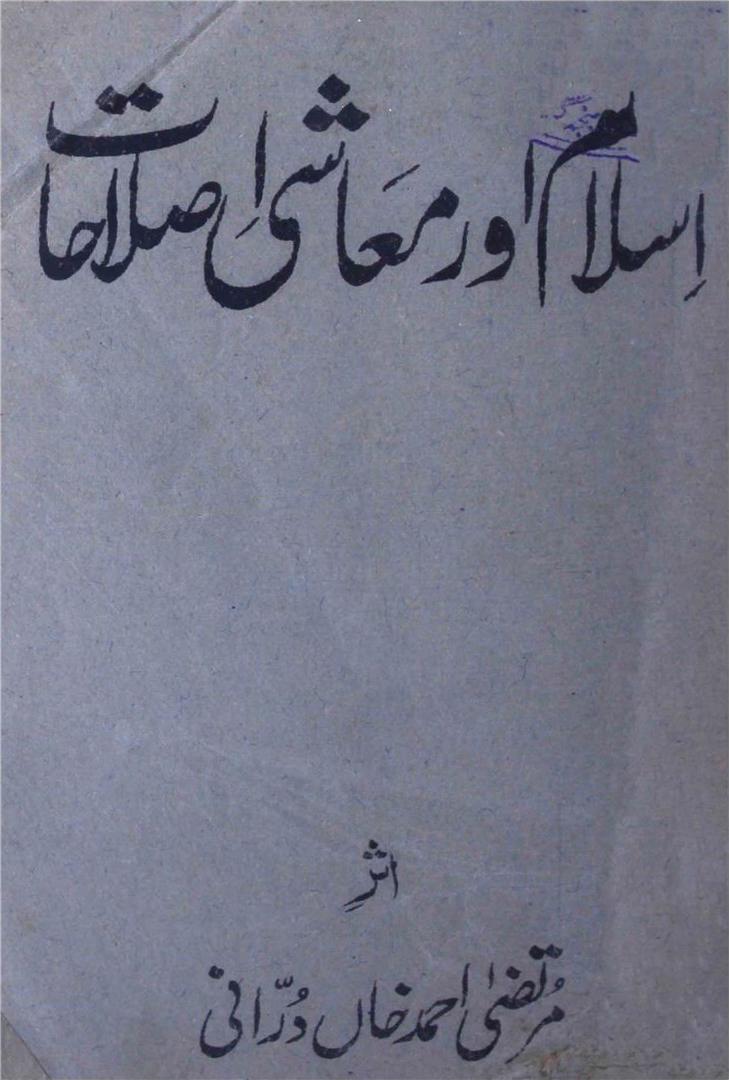 اِسلام اور معَاشی اِصلاحات
اثرِ
مُرتضیٰ احمد خاں دُرّانی